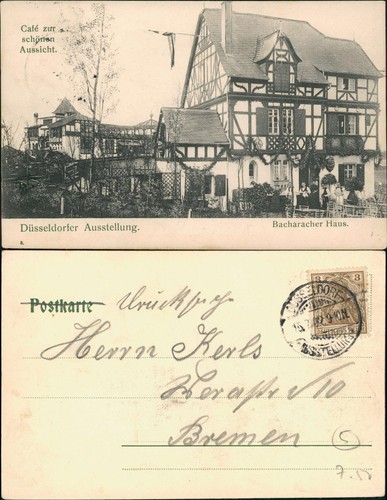 Café zur
schönen
Aussicht.
Düsseldorfer Ausstellung.
Bacharacher Haus.
Postkarte Drucksache
3 3
DÜSSELDORF
AUSSTELLUNG
Herrn Kerls
Werastr. 10
Bremen
5